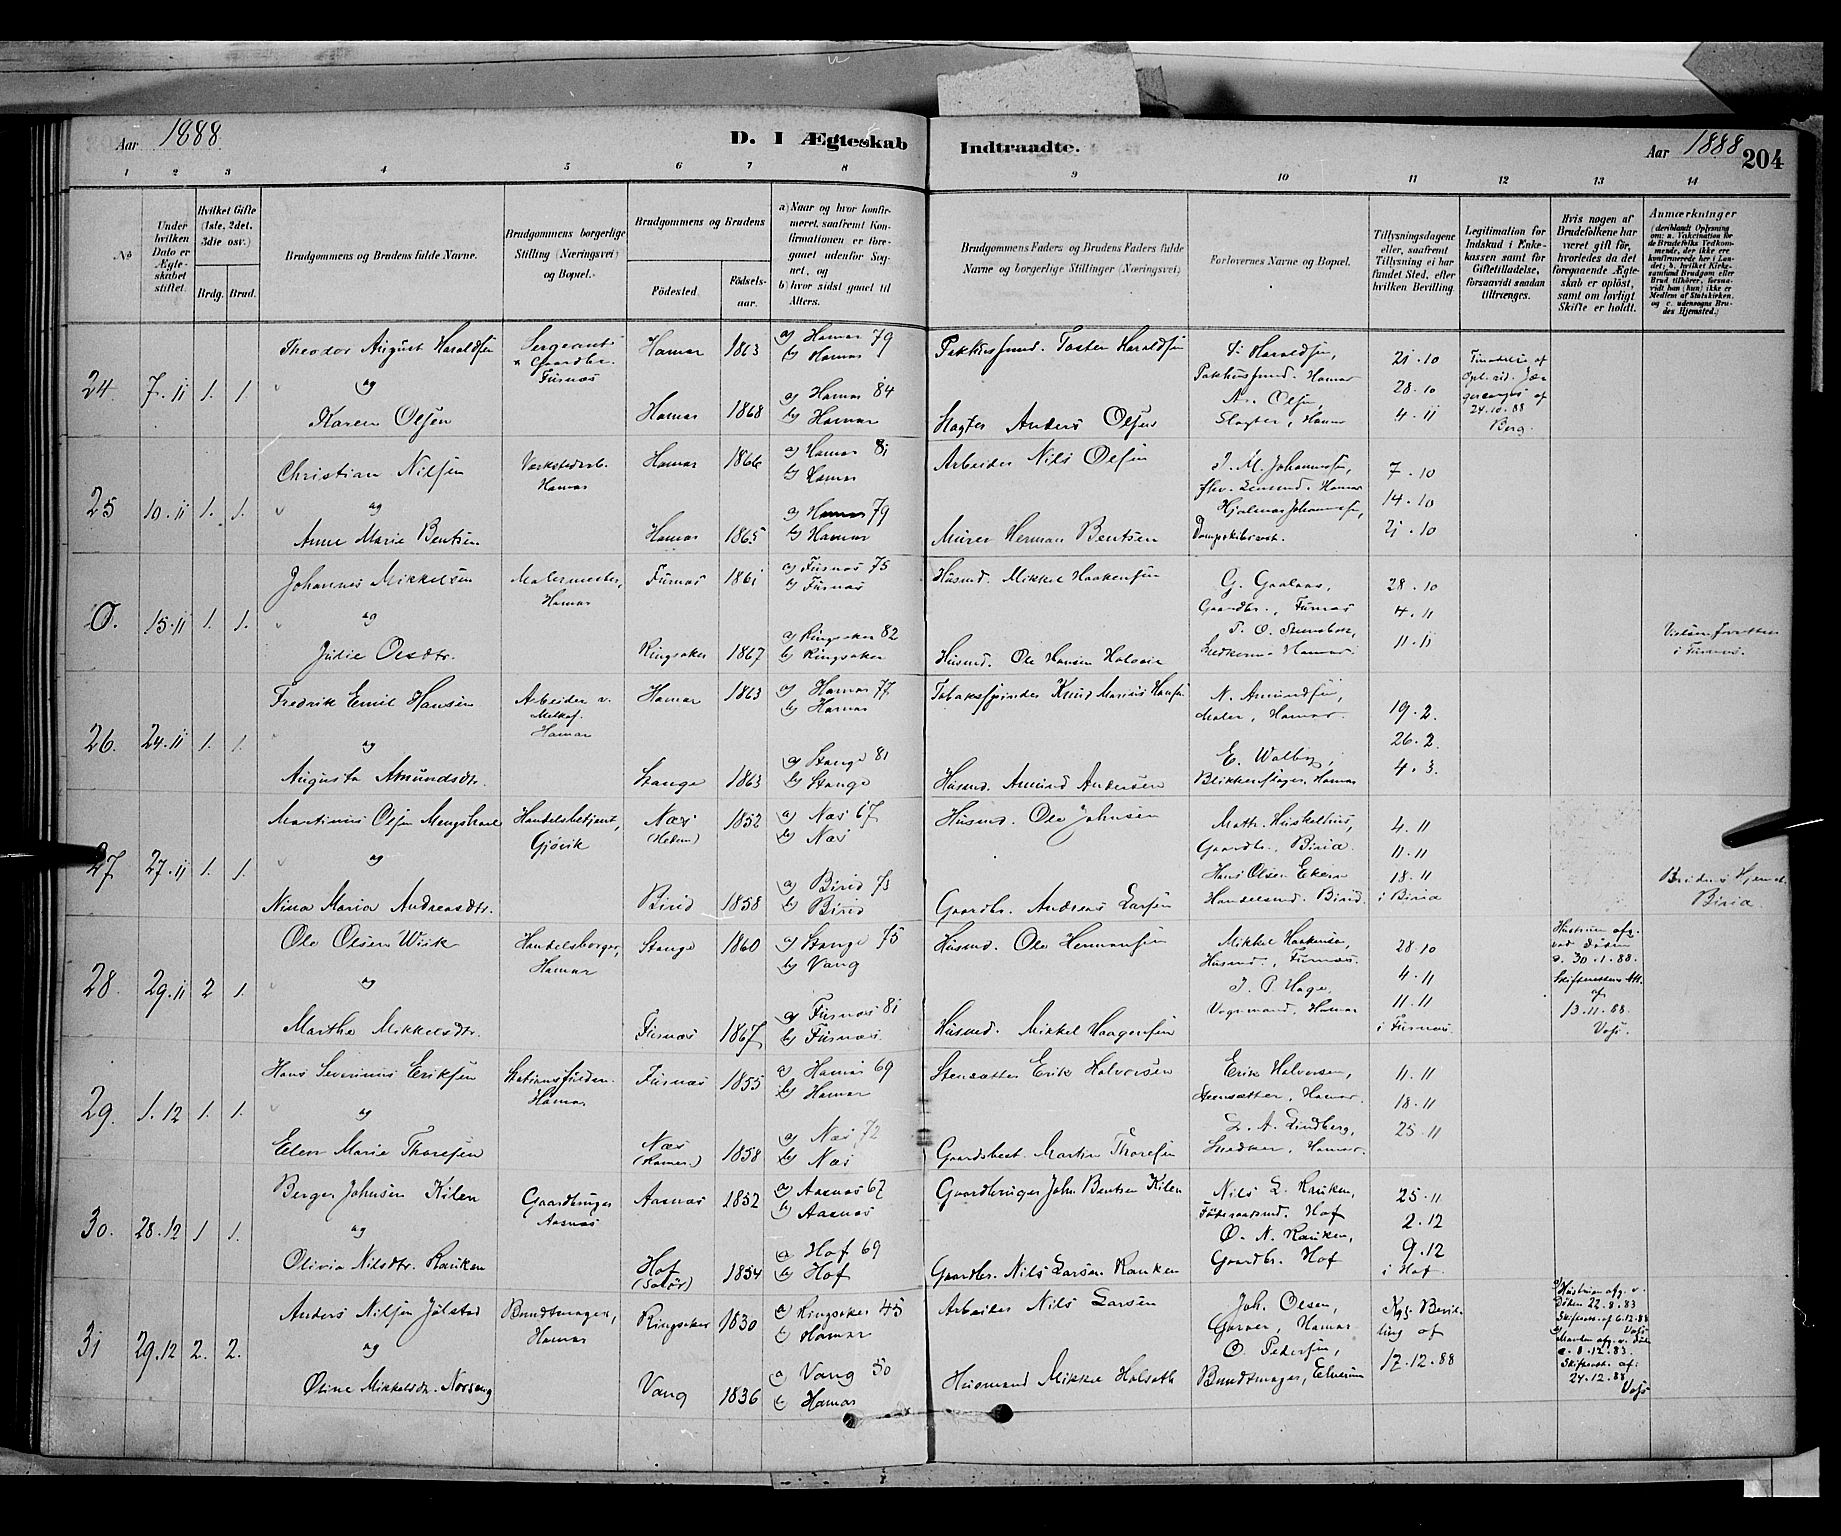 Aar 1888. D. I Ægteskab Indtraadte. Aar 1888 204
1 2 3 4 5 6 7 8 9 10 11 12 13 14
No
Under hvilken Dato er Ægteskabet stiftet.
Hvilket Gifte (1ste, 2det, 3die osv.)
Brdg. Brud.
Brudgommens og Brudens fulde Navne.
Brudgommens borgerlige Stilling (Næringsvei) og Bopæl.
Brudgommens og Brudens
Födested. Födselsaar.
a) Naar og hvor konfirmeret, saafremt Konfirmationen er foregaaet udenfor Sognet, og
b) hvor sidst gaaet til Alters.
Brudgommens Faders og Brudens Faders fulde Navne og borgerlige Stillinger (Næringsvei)
Forlovernes Navne og Bopæl.
Tillysningsdagene eller, saafremt Tillysning ei har fundet Sted, efter hvilken Bevilling.
Legitimation for Indskud i Enkekassen samt for Giftetilladelse, forsaavidt saadan tiltrænges.
Hvis nogen af Brudefolkene har været gift för, hvorledes da det foregaaende Ægteskab er oplöst, samt om lovligt Skifte er holdt.
Anmærkninger
24. 7.11 1. 1.
Theodor August Haraldsen
og
Karen Olsen
Sergeant
Furnæs
Hamar 1863
Hamar 1868
a) Hamar 79
b) Hamar
a) Hamar 84
b) Hamar
Pakhusfmd. Haraldsen
Slagter Anders Olsen
Haraldsen,
Pakhusfmd. Hamar
A. Olsen,
Slagter, Hamar
21.10
28.10
4.11
24.10.88
Berg.
25 10.11 1. 1.
Christian Nilsen
og
Anne Marie Bentsen
Værkstedarb.
Hamar
Hamar 1866
Hamar 1865
a) Hamar 81
b) Hamar
a) Hamar 79
b) Hamar
Arbeider Nils Olsen
Murer Herman Bentsen
J. M. Johannesen,
Hamar
Hjalmar Johannesen,
7.10
14.10
21.10
O. 15.11 1. 1.
Johannes Mikkelsen
og
Julie Olsdtr.
Malermester,
Hamar
Furnæs 1861
Ringsaker 1867
a) Furnæs 75
b) Furnæs
a) Ringsaker 82
b) Ringsaker
Husmd. Mikkel Haakensen
Husmd. Ole Hansen
G. Gaalaas,
Gaardbr., Furnæs
Snedker Hamar.
28.10
4.11
11.11
Vielsen forrettet
i Furnæs.
26. 24.11 1. 1.
Fredrik Emil Hansen
og
Augusta Amundsdtr.
Arbeider v.
Melkef.
Hamar
Hamar 1863
Stange 1863
a) Hamar 77
b) Hamar
a) Stange 81
b) Stange
Tobakspinder Knud Marius Hansen
Husmd. Amund Andersen
N. Amundsen,
Maler, Hamar.
E. Walby,
Blikkenslager, Hamar
19.2.
26.2.
4.3.
27 27.11 1. 1.
Martinus Olsen Mengshoel
og
Nina Maria Andreasdtr.
Handelsbetjent,
Gjøvik
Næs
(Hedem)
1852
Birid 1858
a) Næs 67
b) Næs
a) Birid 73
b) Birid
Husmd. Ole Johnsen
Gaardbr. Andreas Larsen
Math. Huskelhus,
Gaardbr., Birid.
Hans Olsen Ekern
Handelsmd. Birid.
4.11
11.11
18.11
i Birid
Brudens Hjemst.
Birid.
28. 29.11 2 1.
Ole Olsen Wiik
og
Marthe Mikkelsdtr.
Handelsborger,
Hamar
Stange 1860
Furnæs 1867
a) Stange 75
b) Vang
a) Furnæs 81
b) Furnæs.
Husmd. Ole Hermansen
Husmd. Mikkel Haagensen
Mikkel Haakensen,
Husmd., Furnæs.
J. P. Hage,
Vognmand, Hamar
28.10
4.11
11.11
i Furnæs.
Hustruen afg.
ved Døden
d. 30.1.88.
Skifterettens Att.
af
13.11.88
Vofs.
29. 1.12 1. 1.
Hans Severinus Eriksen
og
Elen Marie Thoresen
Hamar
Furnæs 1855
Næs
1858
a) Hamar 69
b) Hamar
a) Næs 72
b) Næs
Stensætter Erik Halvorsen
Gaardsbest. Martin Thoresen
Erik Halvorsen,
Stensætter, Hamar.
L. A. Lindberg,
Snedker, Hamar.
11.11
18.11
25.11
30. 28.12 1 1.
Berger Johnsen Kilen
og
Olivia Nilsdtr. Rauken
Gaardbruger
Aasnæs
Aasnæs 1852
Hof
(Solør)
1854
a) Aasnæs 67
b) Aasnæs
a) Hof 69
b) Hof
Gaardbruger John Bentsen Kilen
Gaardbr. Nils Larsen Rauken
Nils L. Rauken,
Föderaadsmd. Hof
O. N. Rauken,
Gaardbr. Hof
25.11
2.12
9.12
i Hof.
31 29.12 2. 2.
Anders Nilsen Jølstad
og
Oline Mikkelsdtr. Norseng
Bundtmager,
Hamar
Ringsaker 1830
Vang 1836
a) Ringsaker 45
b) Hamar
a) Vang 50
b) Hamar
Arbeider Nils Larsen
Husmand Mikkel Holseth
Joh. Olsen,
Garver, Hamar
O. Pedersen,
Bundtmager, Elverum
Kgl. Bevil-
ling af
17.12.88
Hustruen afg. v.
Døden 22.8.83
Skifteatt. af 6.12.88
Vofs
Manden afg. v. Døden
d. 8.12.83.
Skifteatt. af:
24.12.88
Vofs